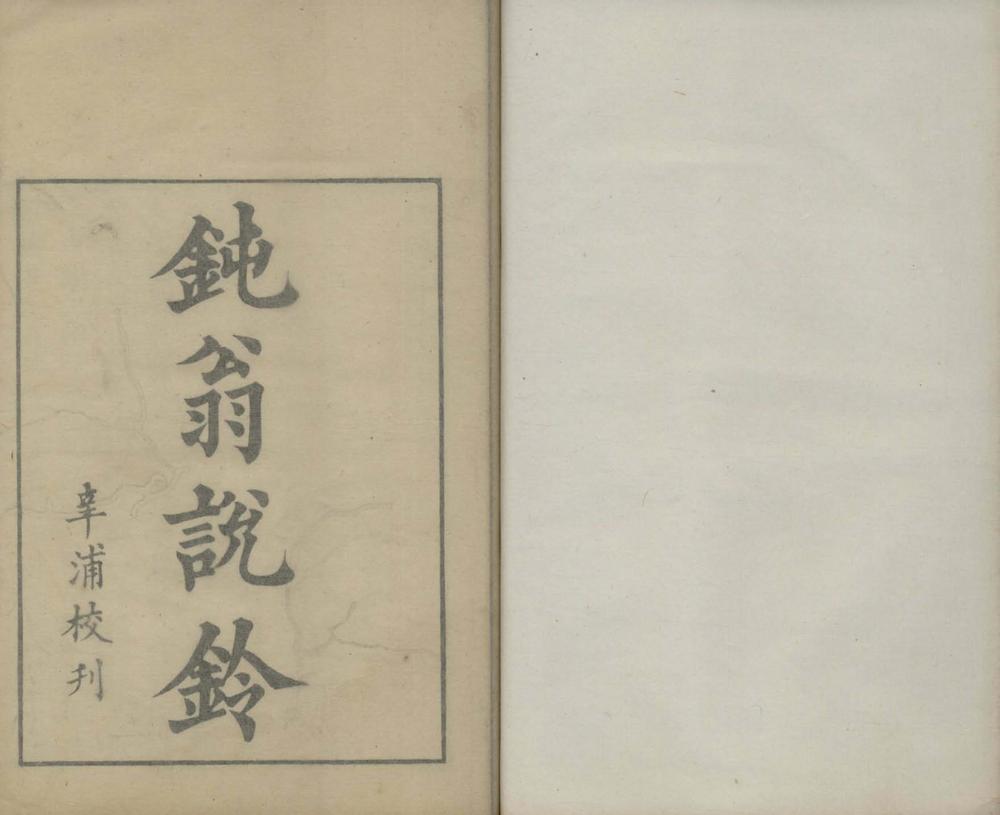 鈍翁說鈴
辛浦校刋